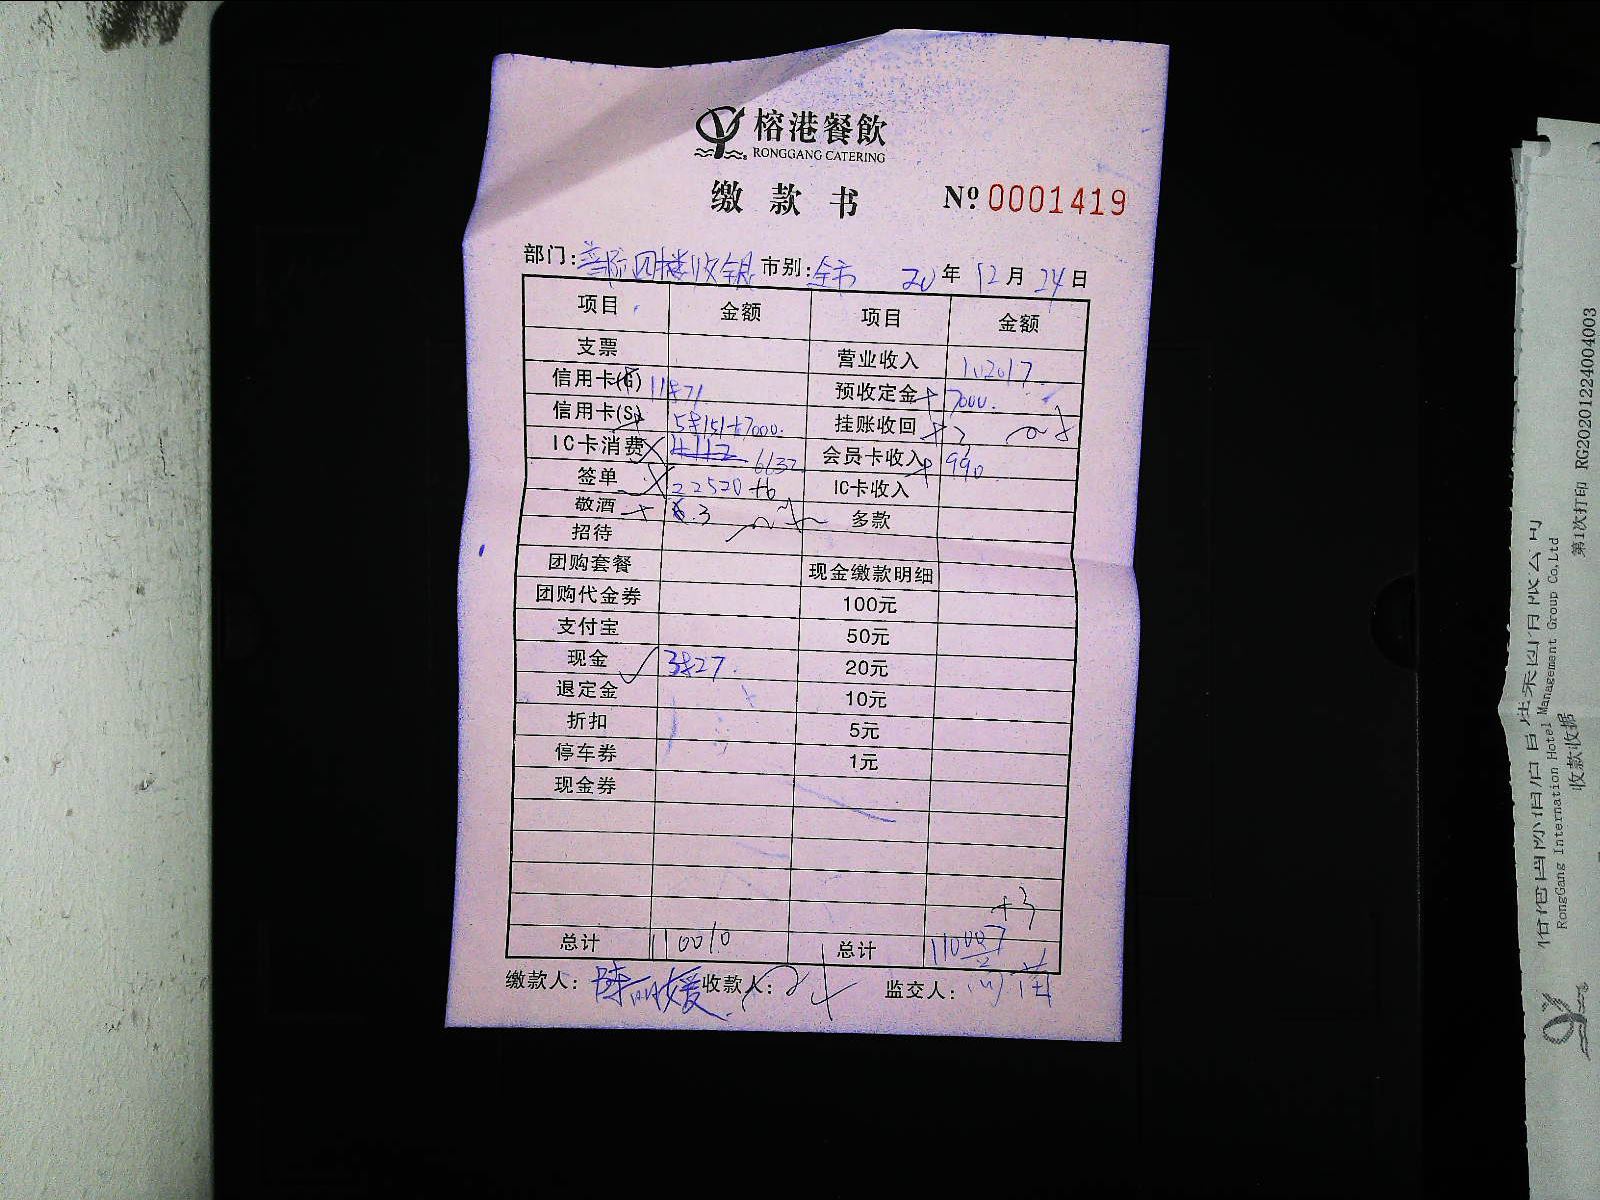 榕港餐飲
RONGGANG CATERING
缴款书 Nº 0001419
部门: 四楼收银 市别: 全市 20年12月24日
项目 金额 项目 金额
支票 营业收入 102017
信用卡 11871 预收定金 + 7000.
信用卡(S) 58151+7000. 挂账收回 + 3
IC卡消费 6632 会员卡收入 + 990
签单 22520+6 IC卡收入
敬酒 .3 多款
招待
团购套餐 现金缴款明细
团购代金券 100元
支付宝 50元
现金 ✓ 3827. 20元
退定金 10元
折扣 5元
停车券 1元
现金券
+3
总计 110010 总计 110007
缴款人: 收款人: 监交人:
RongGang Internation Hotel Management Group Co,Ltd
收款收据
第1次打印 RG20201224004003